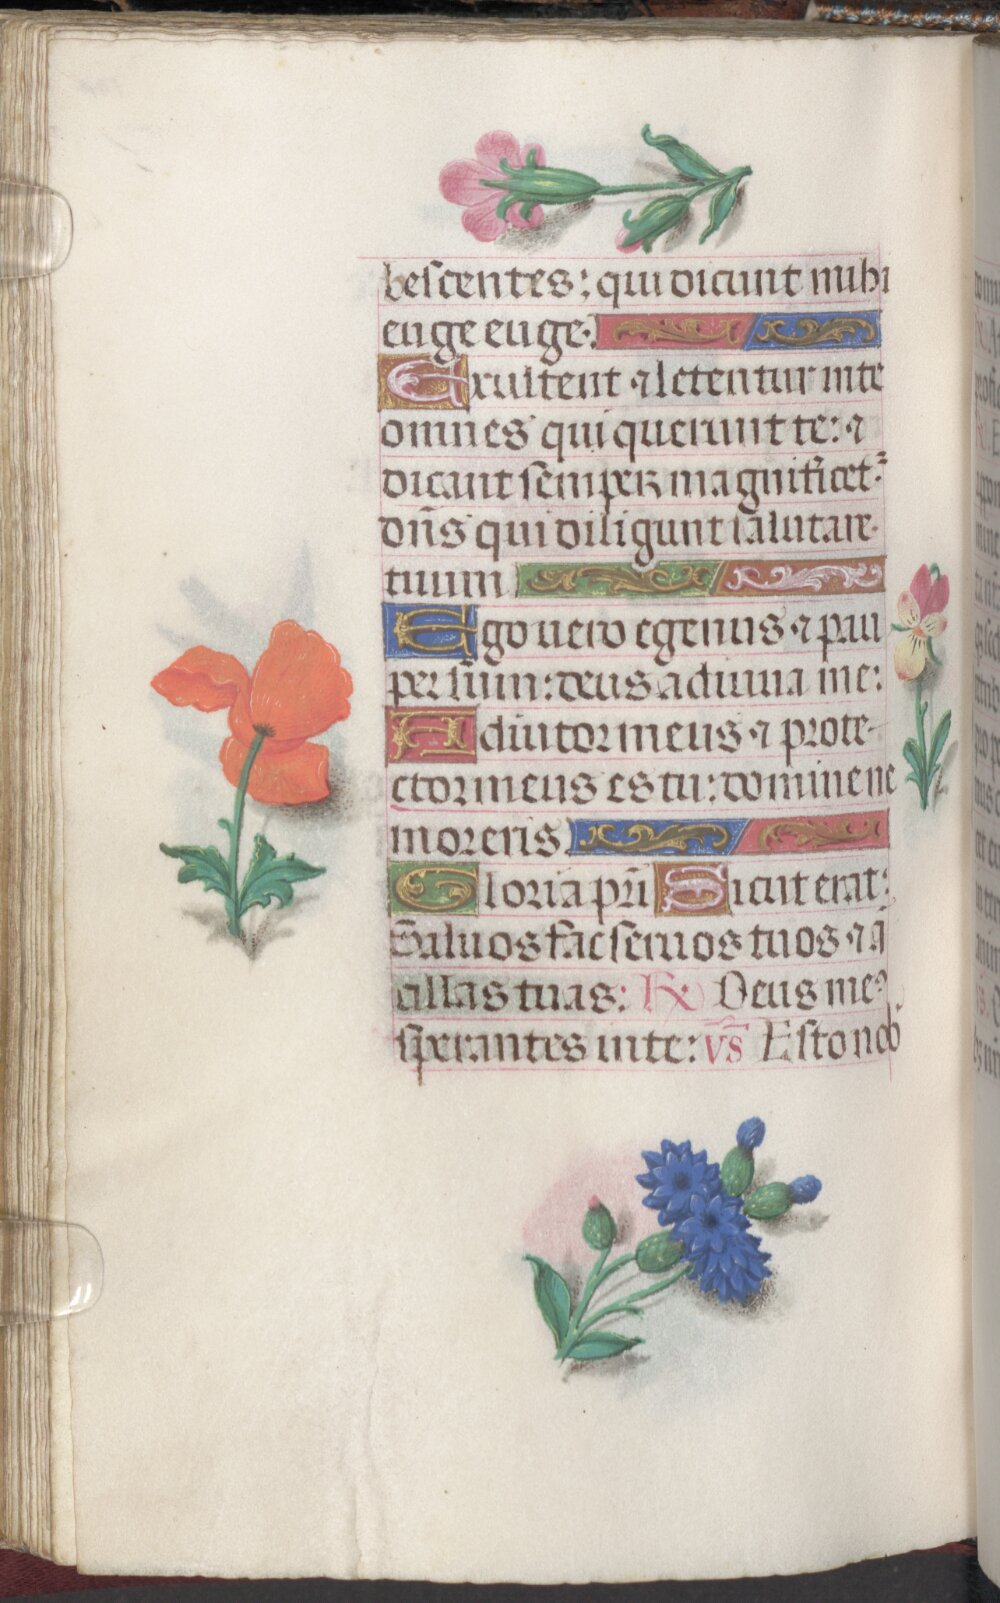 bescentes: qui dicunt michi
euge euge.
Exultent ⁊ letentur in te
omnes qui querunt te: ⁊
dicant semper magnificet̃
dñs qui diligunt salutare
tuum
Ego uero egenus ⁊ pau
per sum: deus adiuua me:
Adiutor meus ⁊ prote-
ctor meus es tu: domine ne
moreris
Gloria pr̃i Sicut erat:
Saluos fac seruos tuos ⁊ ã
cillas tuas: R Deus me9
sperantes in te: vs̃ Esto nob